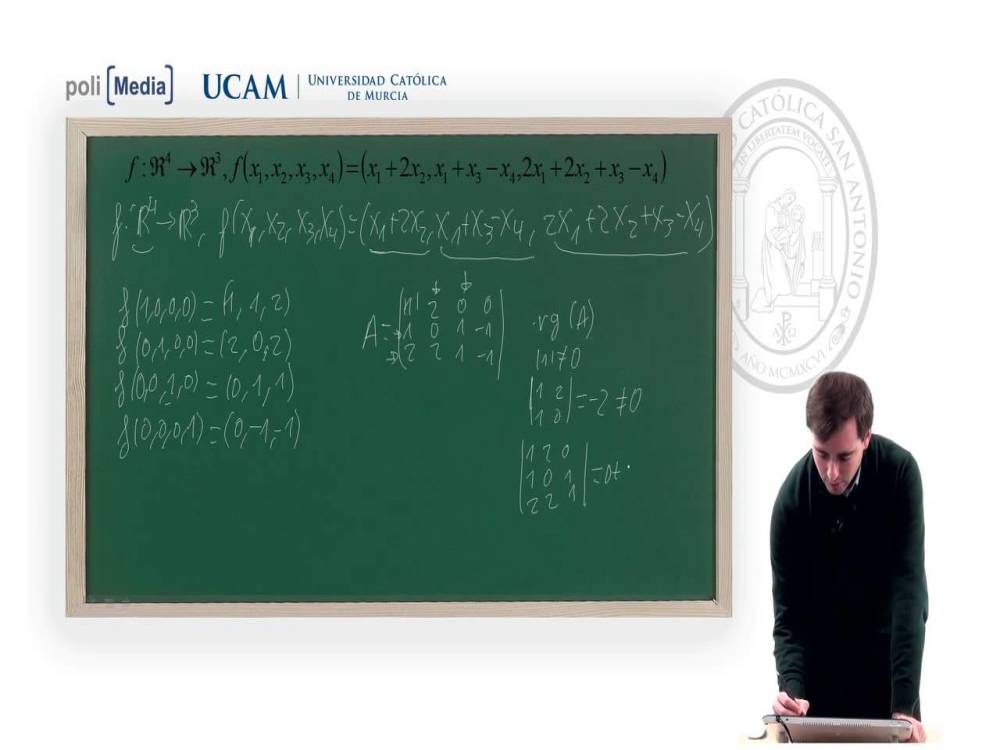 poli [Media] UCAM | UNIVERSIDAD CATÓLICA DE MURCIA
CATÓLICA SAN ANTONIO
IN LIBERTATEM VOCATI
AÑO MCMXCVI
f : ℜ⁴ → ℜ³, f(x₁, x₂, x₃, x₄) = (x₁ + 2x₂, x₁ + x₃ − x₄, 2x₁ + 2x₂ + x₃ − x₄)
f: R⁴ → R³, f(x₁, x₂, x₃, x₄) = (x₁+2x₂, x₁+x₃-x₄, 2x₁+2x₂+x₃-x₄)
f(1,0,0,0) = (1, 1, 2)
f(0,1,0,0) = (2, 0, 2)
f(0,0,1,0) = (0, 1, 1)
f(0,0,0,1) = (0, -1, -1)
A =
|1| 2 0 0
1 0 1 -1
2 2 1 -1
rg (A)
|1| ≠ 0
|1 2|
|1 0| = -2 ≠ 0
|1 2 0|
|1 0 1| = 0+
|2 2 1|